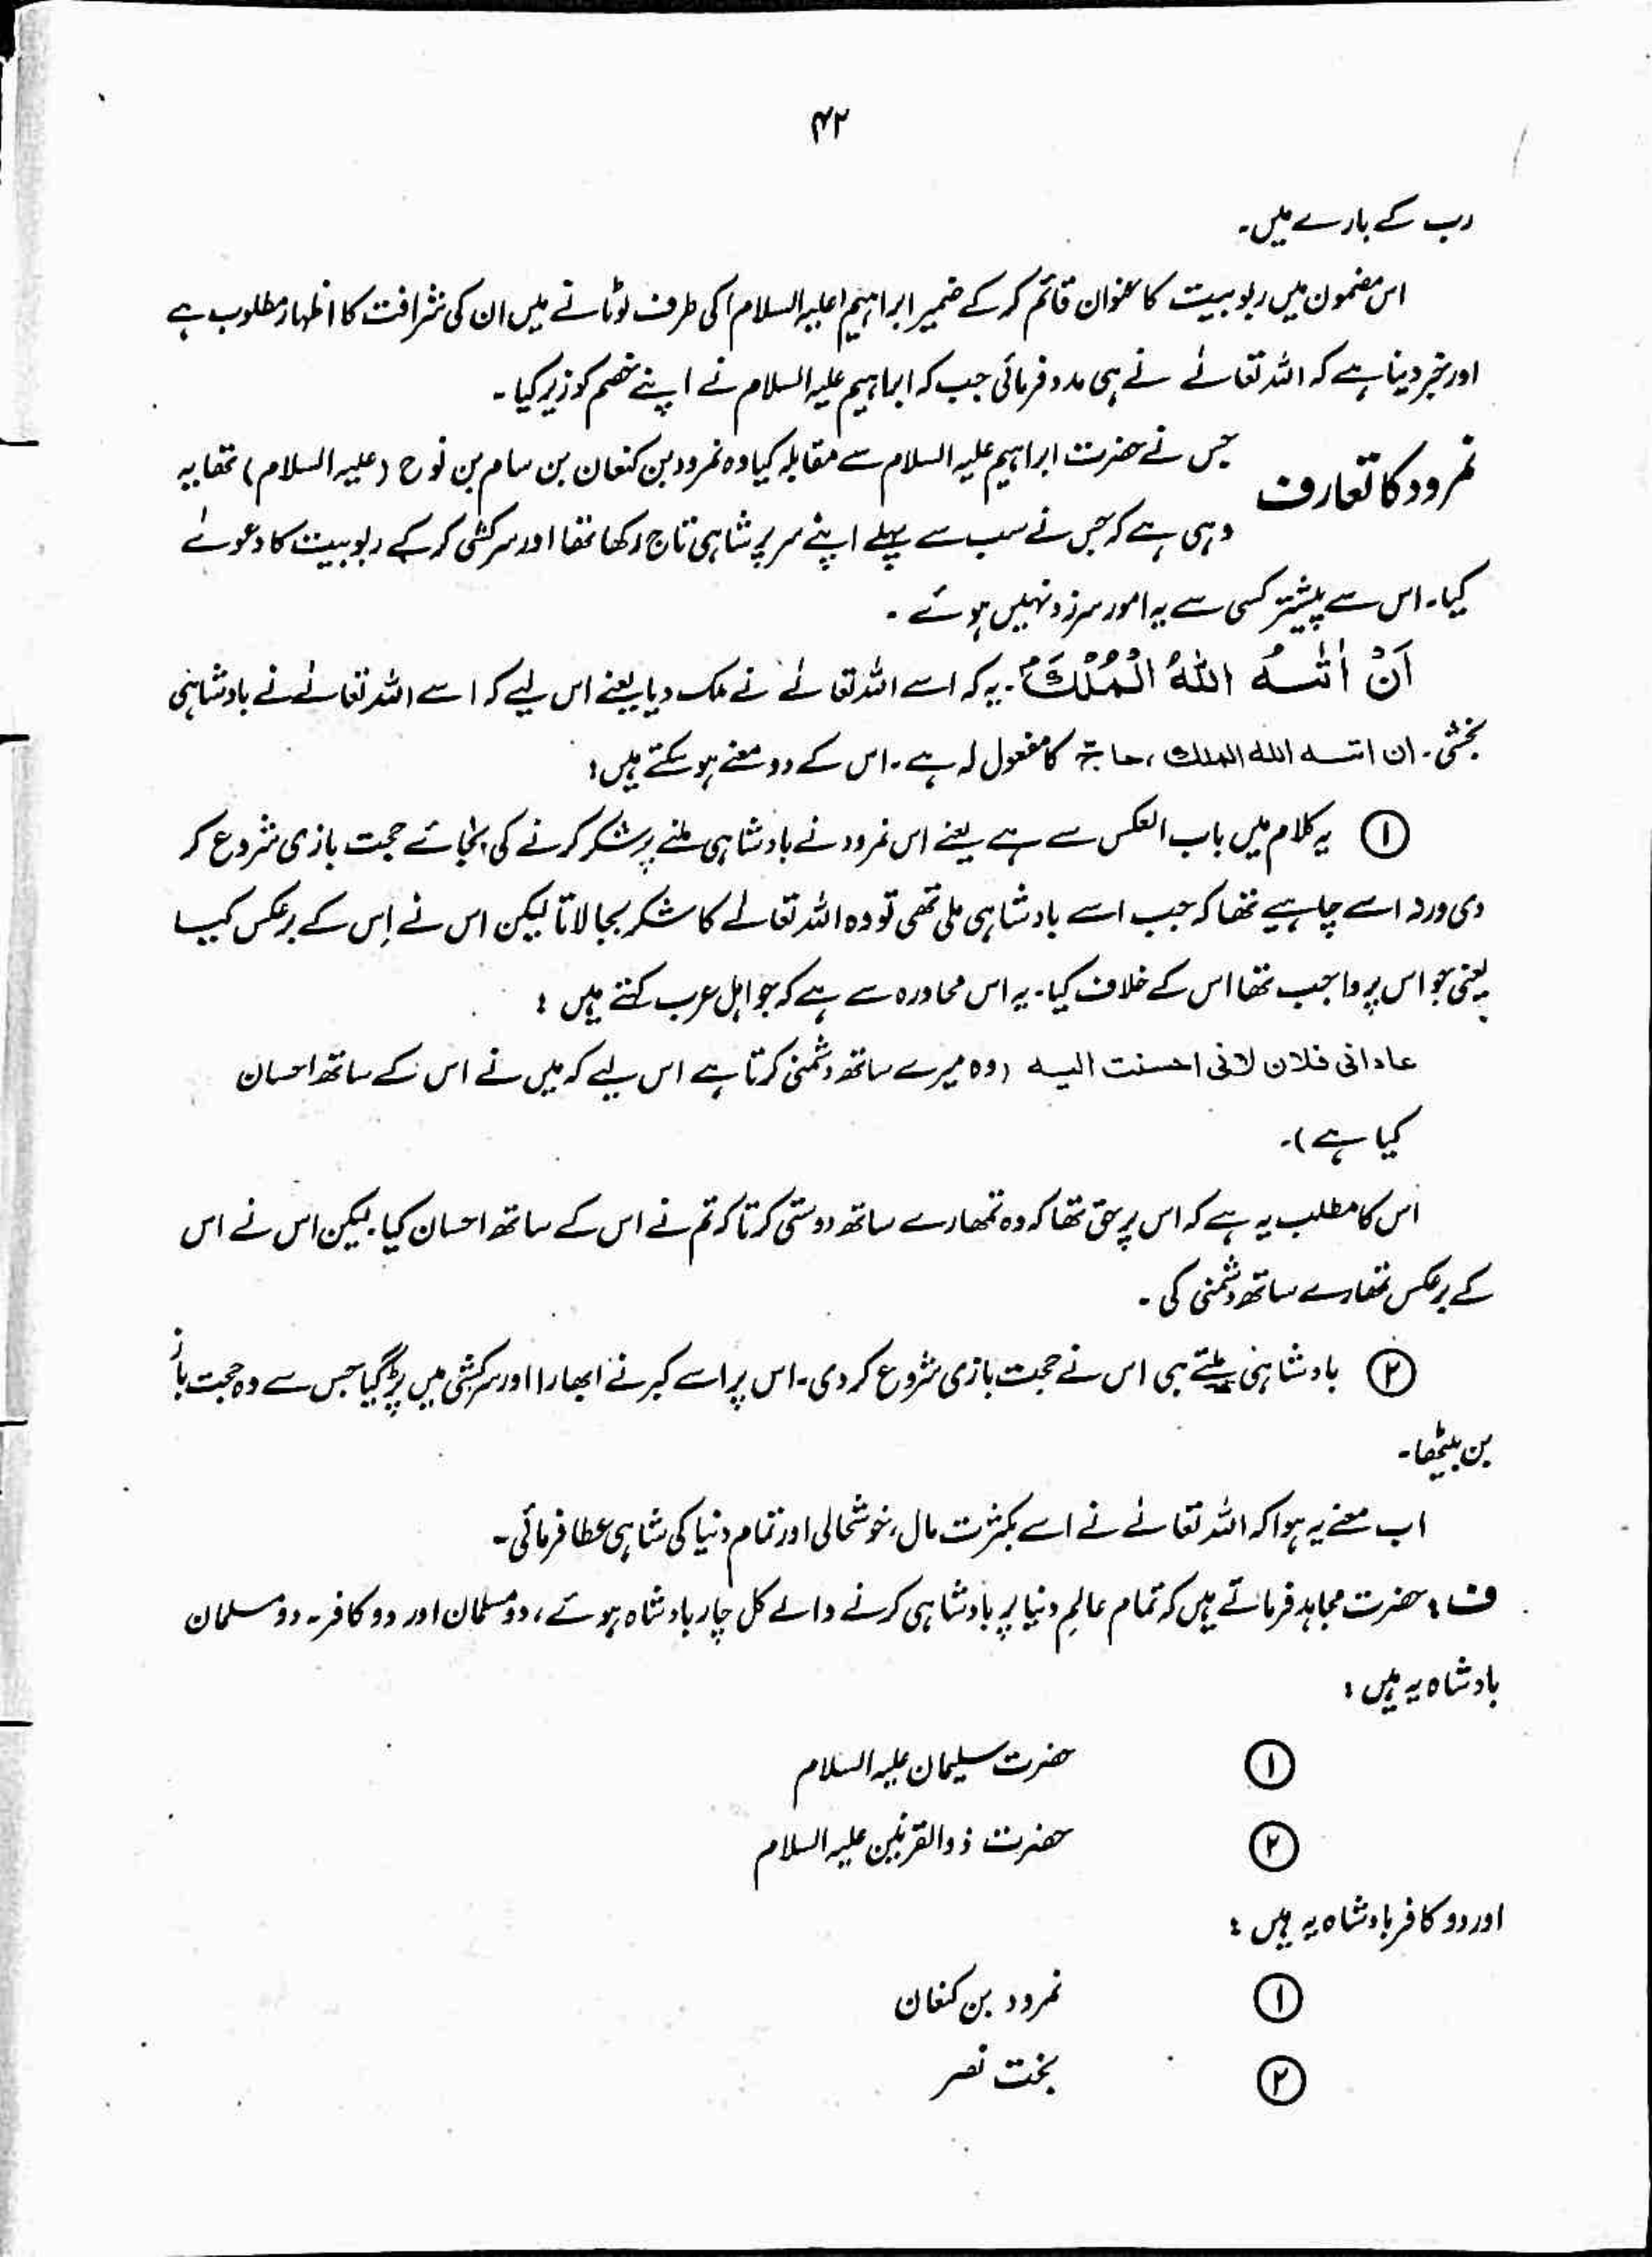 ۴۲
رب کے بارے میں۔
اس مضمون میں ربوبیت کا عنوان قائم کر کے ضمیر ابراہیم (علیہ السلام) کی طرف لوٹانے میں ان کی شرافت کا اظہار مطلوب ہے
اور خبر دینا ہے کہ اللہ تعالےٰ نے ہی مدد فرمائی جب کہ ابراہیم علیہ السلام نے اپنے خصم کو زیر کیا۔
نمرود کا تعارف
جس نے حضرت ابراہیم علیہ السلام سے مقابلہ کیا وہ نمرود بن کنعان بن سام بن نوح (علیہ السلام) تھا یہ
وہی ہے کہ جس نے سب سے پہلے اپنے سر پر شاہی تاج رکھا تھا اور سرکشی کر کے ربوبیت کا دعوےٰ
کیا۔ اس سے پیشتر کسی سے یہ امور سرزد نہیں ہوئے۔
اَنْ اٰتٰـىهُ اللّٰهُ الْمُلْكَ ۘ۔ یہ کہ اسے اللہ تعالےٰ نے ملک دیا یعنے اس لیے کہ اسے اللہ تعالےٰ نے بادشاہی
بخشی۔ ان اتىه الله الملك، حاجّ کا مفعول لہ ہے۔ اس کے دو معنے ہو سکتے ہیں:
① یہ کلام میں باب العکس سے ہے یعنے اس نمرود نے بادشاہی ملنے پر شکر کرنے کی بجائے حجت بازی شروع کر
دی ورنہ اسے چاہیے تھا کہ جب اسے بادشاہی ملی تھی تو وہ اللہ تعالےٰ کا شکر بجا لاتا لیکن اس نے اِس کے برعکس کیا
یعنی جو اس پر واجب تھا اس کے خلاف کیا۔ یہ اس محاورہ سے ہے کہ جو اہل عرب کہتے ہیں:
عادانی فلان لانی احسنت الیه (وہ میرے ساتھ دشمنی کرتا ہے اس لیے کہ میں نے اس کے ساتھ احسان
کیا ہے)۔
اس کا مطلب یہ ہے کہ اس پر حق تھا کہ وہ تمھارے ساتھ دوستی کرتا کہ تم نے اس کے ساتھ احسان کیا۔ لیکن اس نے اس
کے برعکس تمھارے ساتھ دشمنی کی۔
② بادشاہی ملتے ہی اس نے حجت بازی شروع کر دی۔ اس پر اسے کبر نے ابھارا اور سرکشی میں پڑ گیا جس سے وہ حجت باز
بن بیٹھا۔
اب معنے یہ ہوا کہ اللہ تعالےٰ نے اسے بکثرت مال، خوشحالی اور تمام دنیا کی شاہی عطا فرمائی۔
ف: حضرت مجاہد فرماتے ہیں کہ تمام عالمِ دنیا پر بادشاہی کرنے والے کل چار بادشاہ ہوئے، دو مسلمان اور دو کافر۔ دو مسلمان
بادشاہ یہ ہیں:
① حضرت سلیمان علیہ السلام
② حضرت ذوالقرنین علیہ السلام
اور دو کافر بادشاہ یہ ہیں:
① نمرود بن کنعان
② بخت نصر